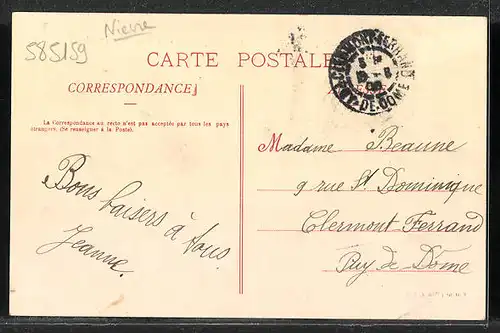 Nievre
585159
CARTE POSTALE
CORRESPONDANCE
La Correspondance au recto n'est pas acceptée par tous les pays
étrangers. (Se renseigner à la Poste).
Bons baisers à tous.
Jeanne.
CLERMONT-FERRAND
PUY-DE-DOME
Madame Beaune
9 rue St Dominique
Clermont Ferrand
Puy de Dôme